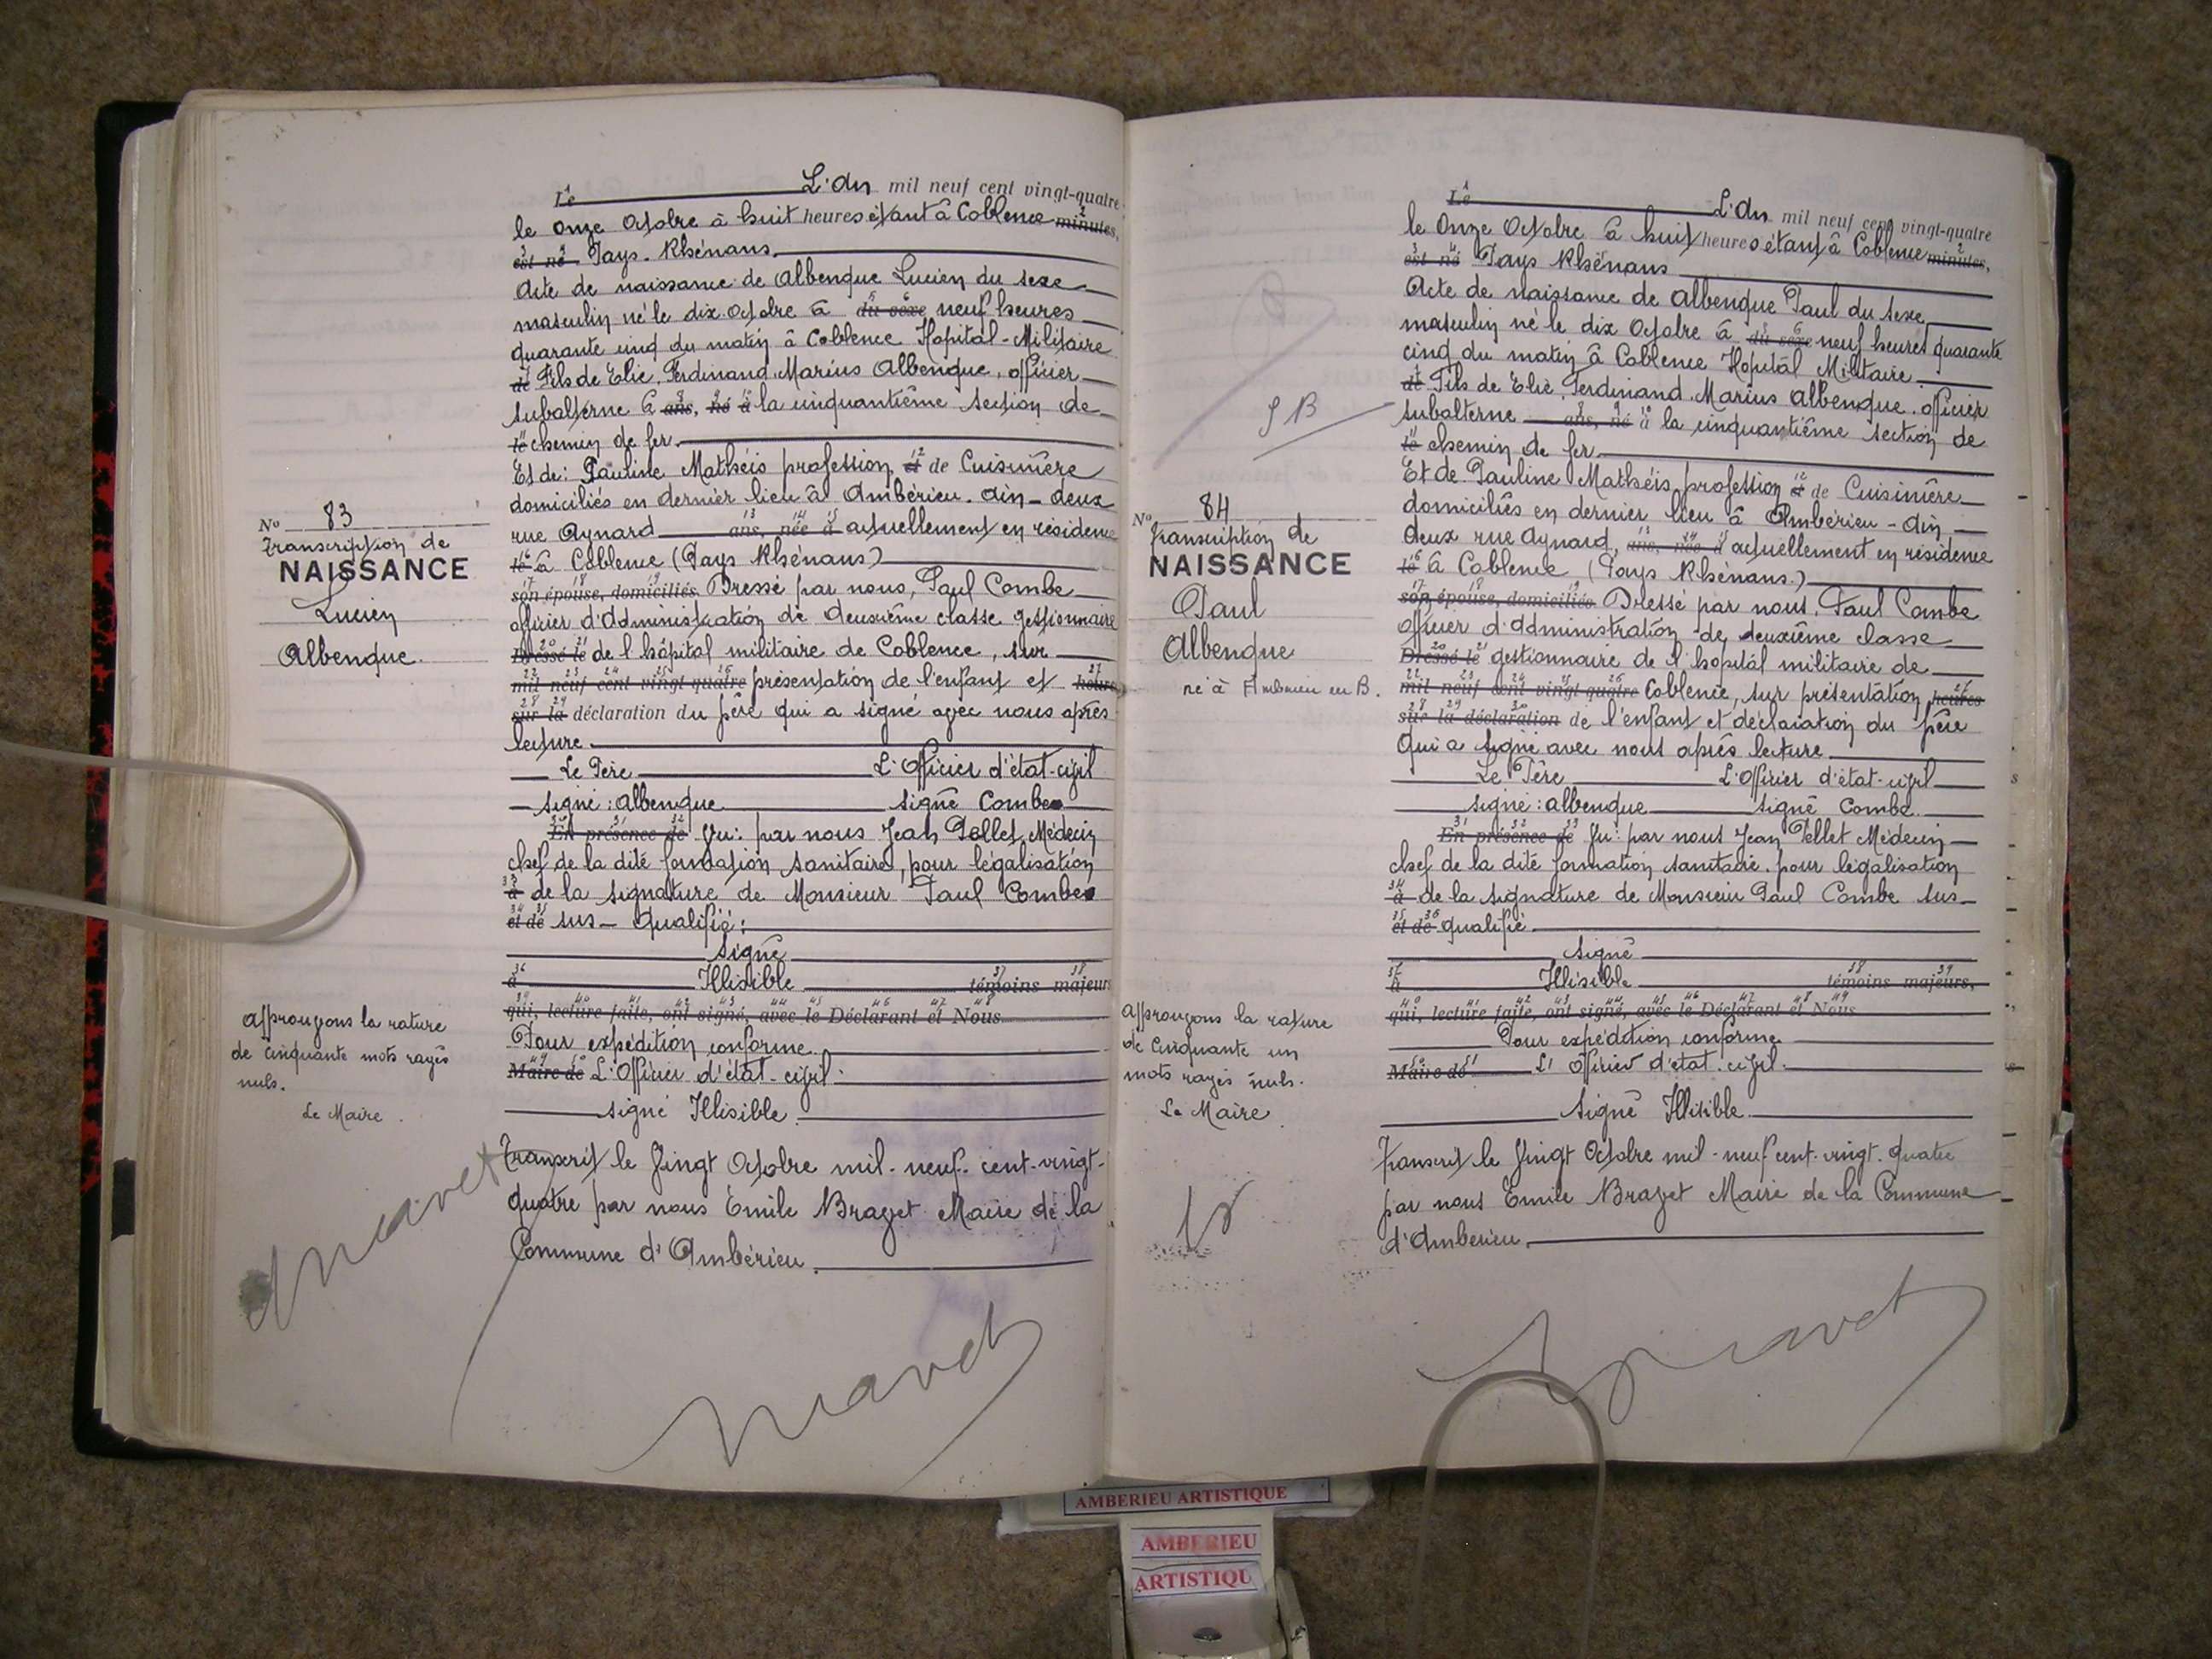 Le L'An mil neuf cent vingt-quatre
le onze Octobre à huit heures étant à Coblence minutes,
est né Pays-Rhénans
Acte de naissance de Albenque Lucien du sexe
masculin né le dix Octobre à du sexe neuf heures
quarante cinq du matin à Coblence Hopital-Militaire
de Fils de Elie, Ferdinand, Marius Albenque, officier
subalterne à ans, né à la cinquantième section de
le chemin de fer.
Et de: Pauline Mathéis profession et de Cuisinière
domiciliés en dernier lieu à Ambérieu-Ain-deux
rue Aynard ans, née à actuellement en résidence
le à Coblence (Pays Rhénans)
son épouse, domiciliés Dressé par nous, Paul Combe
officier d'Administration de deuxième classe gestionnaire
Dressé le de l hôpital militaire de Coblence, sur
mil neuf cent vingt-quatre présentation de l'enfant et heures
sur la déclaration du père qui a signé avec nous après
lecture.
Le Père L'Officier d'état-civil
signé: Albenque signé Combe
En présence de Vu: par nous Jean Pellet, Médecin
chef de la dite formation sanitaire, pour légalisation
à de la signature de Monsieur Paul Combe
et de sus-qualifié:
signé
à Illisible témoins majeurs
qui, lecture faite, ont signé, avec le Déclarant et Nous
Pour expédition conforme
Maire de L'Officier d'état-civil
signé Illisible
Transcrit le Vingt Octobre mil-neuf-cent-vingt-
quatre par nous Emile Bravet Maire de la
Commune d'Ambérieu.
Nº 83
Transcription de
NAISSANCE
Lucien
Albenque.
Approuvons la rature
de cinquante mots rayés
nuls.
Le Maire.
Bravet
Le L'An mil neuf cent vingt-quatre
le Onze Octobre à huit heures étant à Coblence minutes,
est né Pays Rhénans
Acte de naissance de Albenque Paul du sexe
masculin né le dix Octobre à du sexe neuf heures quarante
cinq du matin à Coblence Hopital Militaire.
de Fils de Elie, Ferdinand, Marius Albenque, officier
subalterne ans, né à la cinquantième section de
le chemin de fer.
Et de Pauline Mathéis profession et de Cuisinière
domiciliés en dernier lieu à Ambérieu-Ain-
deux rue Aynard, ans, née à actuellement en résidence
le à Coblence (Pays Rhénans.)
son épouse, domiciliés Dressé par nous, Paul Combe
Officier d'Administration de deuxième classe
Dressé le gestionnaire de l'hopital militaire de
mil neuf cent vingt-quatre Coblence, sur présentation heures
sur la déclaration de l'enfant et déclaration du père
qui a signé avec nous après lecture
Le Père L'Officier d'état-civil
signé: Albenque signé Combe
En présence de Vu: par nous Jean Pellet Médecin
chef de la dite formation sanitaire, pour légalisation
à de la signature de Monsieur Paul Combe sus-
et de qualifié.
signé
à Illisible témoins majeurs,
qui, lecture faite, ont signé, avec le Déclarant et Nous
Pour expédition conforme
Maire de L'Officier d'état-civil.
Signé Illisible
Transcrit le Vingt Octobre mil-neuf cent-vingt-quatre
par nous Emile Bravet Maire de la Commune
d'Amberieu.
Bravet
Nº 84
Transcription de
NAISSANCE
Paul
Albenque
né à Ambérieu en B.
Approuvons la rature
de cinquante un
mots rayés nuls.
Le Maire.
AMBERIEU ARTISTIQUE
AMBERIEU
ARTISTIQU